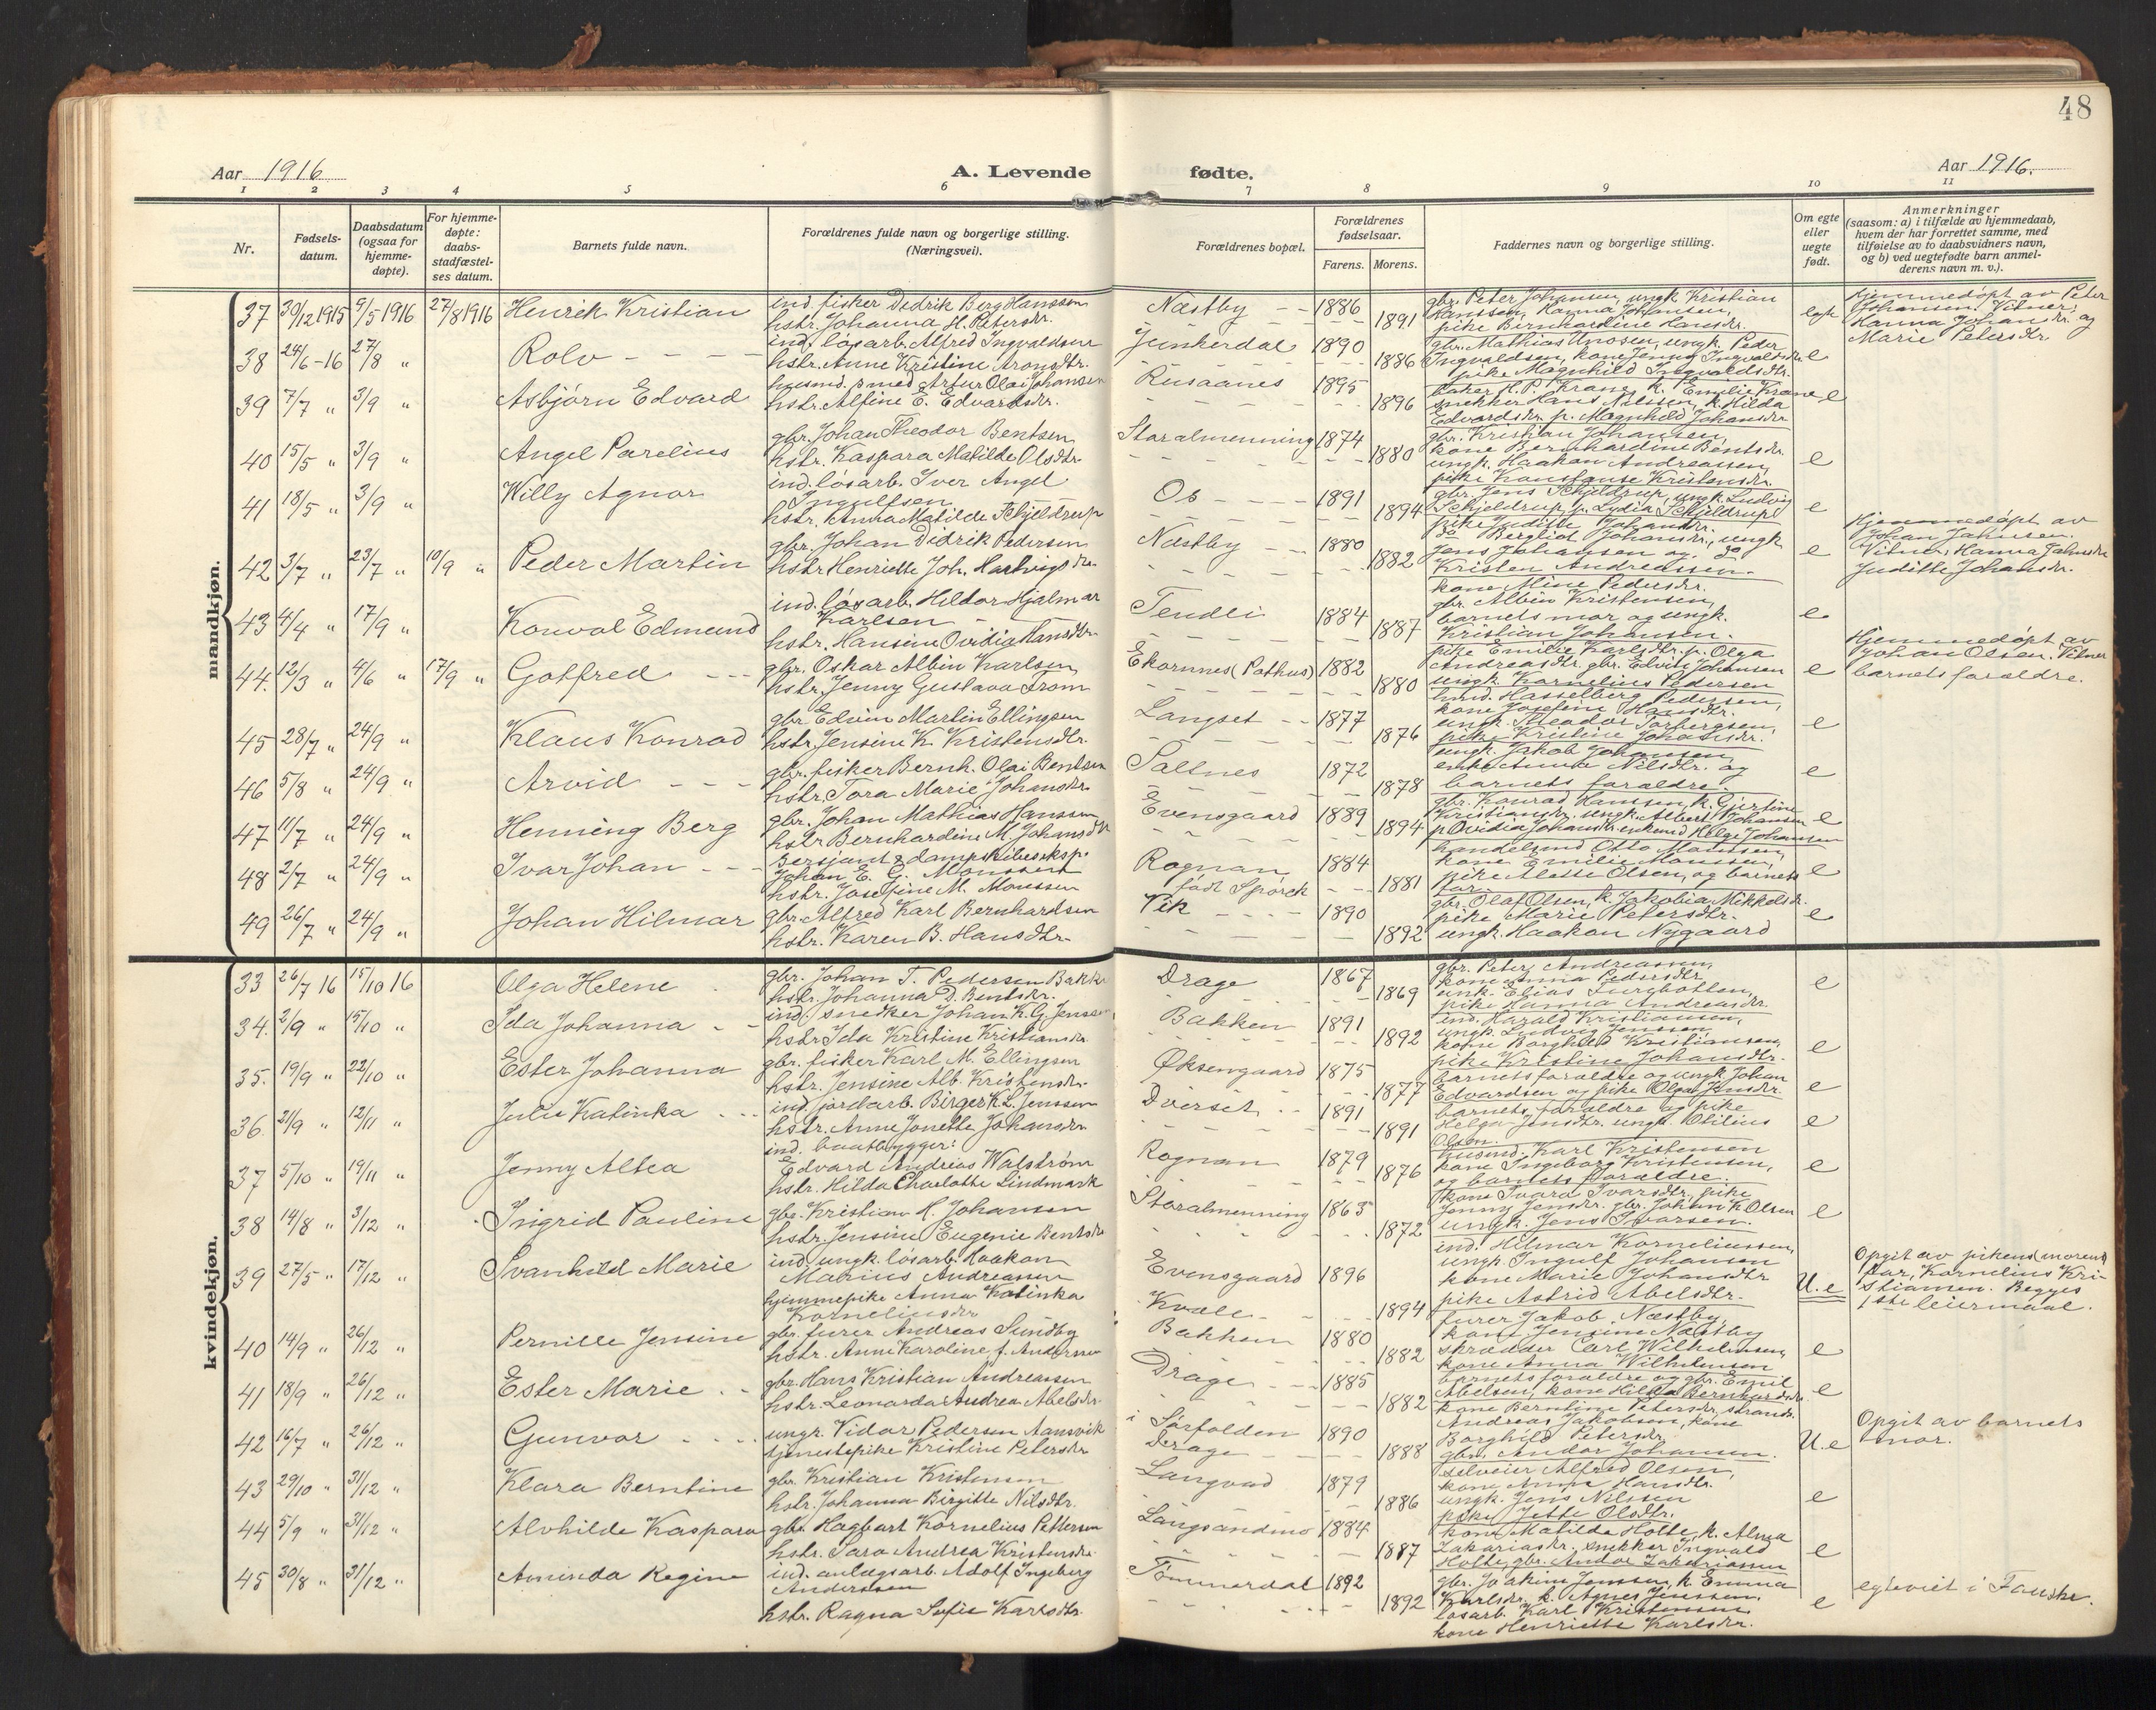 48
Aar 1916
A. Levende
fødte.
Aar 1916.
1 2 3 4 5 6 7 8 9 10 11
Nr.
Fødsels-
datum.
Daabsdatum
(ogsaa for
hjemme-
døpte).
For hjemme-
døpte:
daabs-
stadfæstel-
ses datum.
Barnets fulde navn.
Forældrenes fulde navn og borgerlige stilling.
(Næringsvei).
Forældrenes bopæl.
Forældrenes
fødselsaar.
Farens. Morens.
Faddernes navn og borgerlige stilling.
Om egte
eller
uegte
født.
Anmerkninger
(saasom: a) i tilfælde av hjemmedaab,
hvem der har forrettet samme, med
tilføielse av to daabsvidners navn,
og b) ved uegtefødte barn anmel-
derens navn m. v.).
mandkjøn.
37 30/12 1915 9/5 1916 27/8 1916 Henrik Kristian
ind. fisker Didrik Berg Hanssen
hstr. Johanna H. Petersdtr.
Næstby 1886 1891
gbr. Peter Johansen, ungk. Kristian
Hanssen, Hanna Johansen,
pike Bernhardine Hansdtr.
egte
Hjemmedøpt av Peter
Johansen. Vitner:
Hanna Johansdtr. og
Marie Petersdtr.
38 24/6-16 27/8 " Rolv
ind. løsarb. Alfred Ingvaldsen
hstr. Anne Kristine Aronsdtr.
Junkerdal 1890 1886
gbr. Mathias Unosen, ungk. Peder
Ingvaldsen, kone Jenny Ingvaldsdtr.
pike Magnhild Ingvaldsdtr.
e
39 7/7 " 3/9 " Asbjørn Edvard
husmd. smed Artur Olai Johansen
hstr. Alfine E. Edvardsdtr.
Rusaanes 1895 1896
baker H. P. Krane, k. Emilie Krane
snekker Hans Nilssen, k. Hilda
Edvardsdtr. p. Magnhild Johansdtr.
e
40 15/5 " 3/9 " Angel Parelius
gbr. Johan Theodor Bentsen
hstr. Kaspara Matilde Olsdtr.
Storalmenning 1874 1880
gbr. Kristian Johansen
kone Bernhardine Bentsdtr.
ungk. Haakon Andreassen,
pike Konstanse Kristensdtr.
e
41 18/5 " 3/9 " Willy Agnar
ind. løsarb. Iver Angel
Ingulfsen
hstr. Anna Matilde Schjeldrup
Os 1891 1894
gbr. Jens Schjeldrup, ungk. Ludvig
Schjeldrup, p. Lydia Schjeldrup
pike Juditte Johansdtr.
e
42 3/7 " 23/7 " 10/9 " Peder Martin
gbr. Johan Didrik Pedersen
hstr. Henriette Joh. Hartvigsdtr.
Næstby 1880 1882
do Bergliot Johansdtr., ungk.
Jens Johansen og do
Kristen Andreassen.
kone Aline Pedersdtr.
e
Hjemmedøpt av
Johan Johnsen.
Vitner: Hanna Johnsdtr.
Juditte Johansdtr.
43 4/4 " 17/9 " Konval Edmund
ind. løsarb. Hildor Hjalmar
Karlsen
hstr. Hansine Ovidia Hansdtr.
Tendli 1884 1887
gbr. Albin Kristensen,
barnets mor og ungk.
Kristian Johansen.
e
44. 12/3 " 4/6 " 17/9 " Gotfred
gbr. Oskar Albin Karlsen
hstr. Jenny Gustava From
Ekornnes (Pothus) 1882 1880
pike Emilie Karlsdtr. p. Olga
Andreasdtr. gbr. Edvin Johansen
ungk. Kornelius Pedersen
e
Hjemmedøpt av
Johan Olsen. Vitner
barnets forældre.
45 28/7 " 24/9 " Klaus Konrad
gbr. Edvin Martin Ellingsen
hstr. Jensine K. Kristensdtr.
Langset 1877 1876
husmd. Hasselberg Pedersen,
kone Josefine Hansdtr.
ungk. Theodor Torbergsen,
pike Kristine Johansdtr.
e
46 5/8 " 24/9 " Arvid
gbr. fisker Bernh. Olai Bentsen
hstr. Tora Marie Johansdtr.
Saltnes 1872 1878
ungk. Jakob Johansen,
enke Anna Nilsdtr. og
barnets forældre.
e
47 11/7 " 24/9 " Henning Berg
gbr. Johan Mathias Hanssen
hstr. Bernhardine M. Johansdtr.
Evensgaard 1889 1894
gbr. Konrad Hanssen, k. Gjertine
Kristiansdr. ungk. Albert Johansen
p. Ovidia Johansdtr. enkemd Helge Johansen
e
48 2/7 " 24/9 " Ivar Johan
Sersjant & dampskibseksp.
Johan E. G. Monssen
hstr. Josefine M. Monssen
Rognan 1884 1881
født Spørck
handelsmd Otto Monssen,
kone Emilie Monssen,
pike Alette Olsen, og barnets
far.
e
49 26/7 " 24/9 " Johan Hilmar
gbr. Alfred Karl Bernhardsen
hstr. Karen B. Hansdtr.
Vik 1890 1892
gbr. Olaf Olsen, k. Jakobia Mikkelsdr.
pike Marie Petersdtr.
ungk. Haakon Nygaard
e
kvindekjøn.
33 26/7 16 15/10 16 Olga Helene
gbr. Johan T. Pedersen Bakke
hstr. Johanna D. Bentsdtr.
Drage 1867 1869
gbr. Peter Andreassen,
kone Anna Pedersdtr.
unk. Elias
pike Hanna Andreasdtr.
e
34. 2/9 " 15/10 " Ida Johanna
ind. snedker Johan K. G. Jenssen
hstr. Ida Kristine Kristiansdtr.
Bakken 1891 1892
ind. Harald Kristiansen,
ungk. Ludvig Jenssen
kone Borghild Kristiansen,
pike Kristine Johansdtr.
e
35. 19/9 " 22/10 " Ester Johanna
gbr. fisker Karl M. Ellingsen
hstr. Jensine Alb. Kristensdtr.
Øksengaard 1875 1877
barnets forældre og ungk. Johan
Edvardsen og pike Olga Jensdtr.
e
36. 21/9 " 12/11 " Julie Katinka
ind. jordarb. Birger K. L. Jenssen
hstr. Anne Jonette Johansdtr.
Dverset 1891 1891
barnets forældre og pike
Helga Jensdtr. ungk. Otilius
Olsen.
e
37 5/10 " 19/11 " Jenny Altea
ind. baatbygger:
Edvard Andreas Walstrøm
hstr. Hilda Charlotte Lindmark
Rognan 1879 1876
husmd. Karl Kristensen
kone Ingeborg Kristensen,
og barnets forældre.
e
38 14/8 " 3/12 " Ingrid Pauline
gbr. Kristian A. Johansen
hstr. Jensine Eugenie Bentsdtr.
Storalmenning 1863 1872
kone Ivara Ivarsdtr. pike
Jonny Jensdr. gbr. Johan K. Olsen
ungk. Jens Ivarsen.
e
39 27/5 " 17/12 " Svanhild Marie
ind. ungk. løsarb. Haakon
Marius Andreassen
hjemmepike Anna Katinka
Korneliusdtr.
Evensgaard 1896
Kvæle 1894
ind. Hilmar Korneliussen,
ungk. Ingulf Johansen
kone Marie Johansdtr
pike Astrid Abelsdtr.
U.e
Opgit av pikens (morens)
far, Kornelius Kri-
stiansen. Begges
1ste leiermaal.
40 14/9 " 26/12 " Pernille Jensine
gbr. furer Andreas Sundby
hstr. Anne Karoline f. Andersen
Bakken 1880 1882
furer Jakob Næstby,
kone Jensine Næstby
skrædder Carl Wilhelmsen,
kone Anna Wilhelmsen
e
41 18/9 " 26/12 " Ester Marie
gbr. Hans Kristian Andreassen
hstr. Leonarda Andrea Abelsdtr.
Drage 1885 1882
barnets forældre og gbr. Emil
Abelsen, kone Hilda Bernhardsdr.
e
42 16/7 " 26/12 " Gunvor
ungk. Vidar Pedersen Aansvik
tjenestepike Kristine Petersdtr
i Sørfolden 1890
Drage 1888
kone Berntine Petersdtr,
Andreas Jakobsen, kone
Borghild Petersdr.
gbr. Andor Johansen.
U.e
Opgit av barnets
mor.
43 29/10 " 31/12 " Klara Berntine
gbr. Kristian Kristensen
hstr. Johanna Birgitte Nilsdtr.
Langvad 1879 1886
selveier Alfred Olsen,
kone Anna Hansdtr.
ungk. Jens Nilssen
pike Jette Olsdtr.
e
44 5/9 " 31/12 " Alvhilde Kaspara
gbr. Hagbart Kornelius Pettersen
hstr. Sara Andrea Kristensdtr.
Langsandmo 1884 1887
kone Matilde Holte, k. Alma
Zakariasdr., snekker Ingvald
Holte, gbr. Andor Zakariassen
e
45 30/8 " 31/12 " Amanda Regine
ind. anlægsarb. Adolf Ingeberg
Anderssen
hstr. Ragna Sofie Karlsdtr.
Tømmerdal 1892 1892
gbr. Joakim Jenssen, k. Emma
Karlsdr. k. Agnes Jenssen.
løsarb. Karl Kristensen
kone Henriette Karlsdtr.
e
egteviet i Fauske.